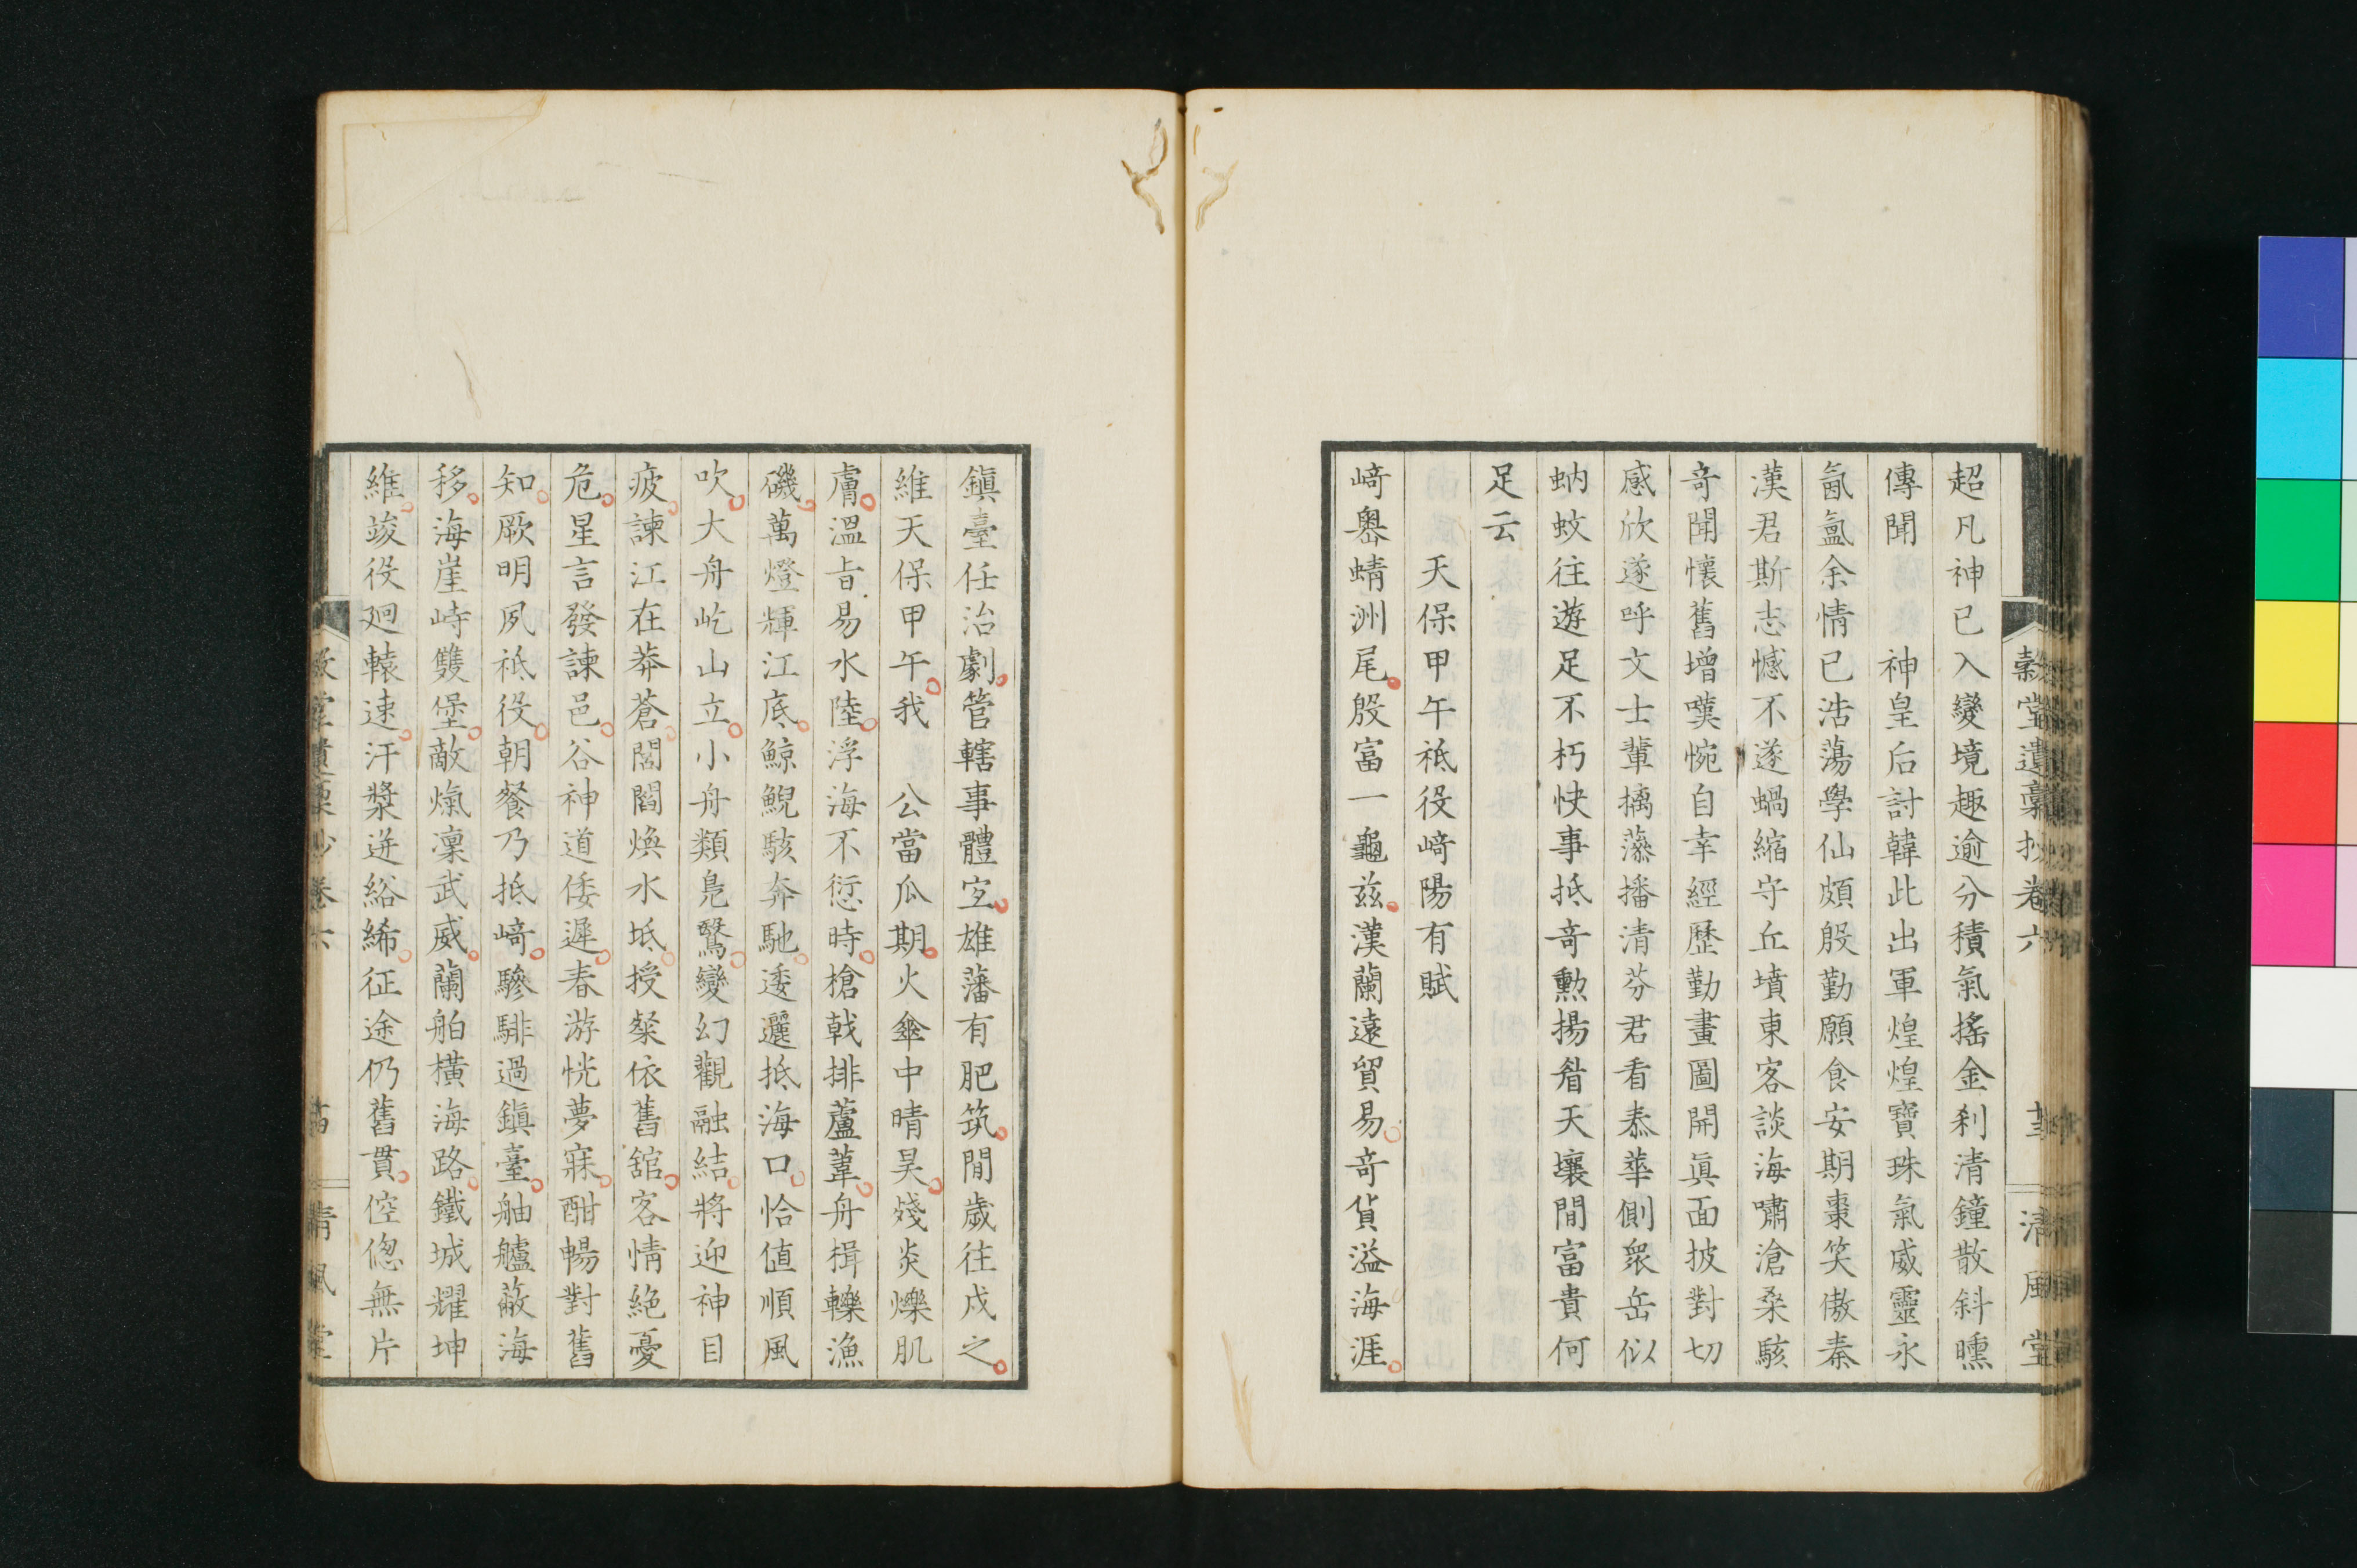 穀堂遺稾抄卷六　十三　淸風堂
超凡神已入變境趣逾分積氣搖金刹清鐘散斜曛
傳聞　神皇后討韓此出軍煌煌寶珠氣威靈永
氤氳余情已浩蕩學仙頗殷勤願食安期棗笑傲秦
漢君斯志憾不遂蝸縮守丘墳東客談海嘯滄桑駭
奇聞懷舊增嘆惋自幸經歷勤畫圖開眞面披對切
感欣遂呼文士輩摛藻播清芬君看泰華側衆岳似
蚋蚊往遊足不朽快事抵奇勲揚眉天壤間富貴何
足云
天保甲午祗役﨑陽有賦
﨑嶴蜻洲尾殷富一龜茲漢蘭遠貿易奇貨溢海涯
鎭臺任治劇管轄事體宜雄藩有肥筑閒歲往戍之
維天保甲午我　公當瓜期火傘中晴昊殘炎爍肌
膚溫旨易水陸浮海不愆時槍戟排蘆葦舟楫轢漁
磯萬燈輝江底鯨鯢駭奔馳逶邐抵海口恰値順風
吹大舟屹山立小舟類鳧鷖變幻觀融結將迎神目
疲諫江在莽蒼閭閻煥水坻授粲依舊舘客情絶憂
危星言發諫邑谷神道倭遲春游恍夢寐酣暢對舊
知厥明夙祗役朝餐乃抵﨑驂騑過鎭臺舳艫蔽海
移海崖峙雙堡敵熂凜武威蘭舶橫海路鐵城耀坤
維竣役廻轅速汗漿迸綌絺征途仍舊貫倥偬無片
穀堂遺稾抄卷六　十四　淸風堂